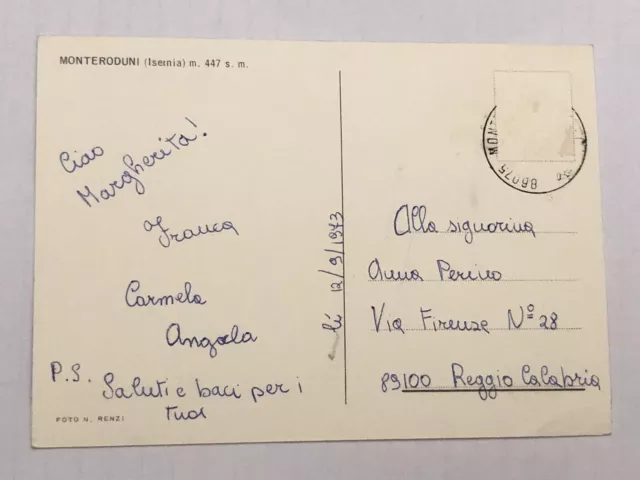 MONTERODUNI (Isernia) m. 447 s. m.
Ciao
Margherita!
Franca
Carmela
Angela
P.S. Saluti e baci per i
tuoi
FOTO N. RENZI
lì 12/9/1973
86075 MON
Alla signorina
Anna Perino
Via Firenze Nº 28
89100 Reggio Calabria